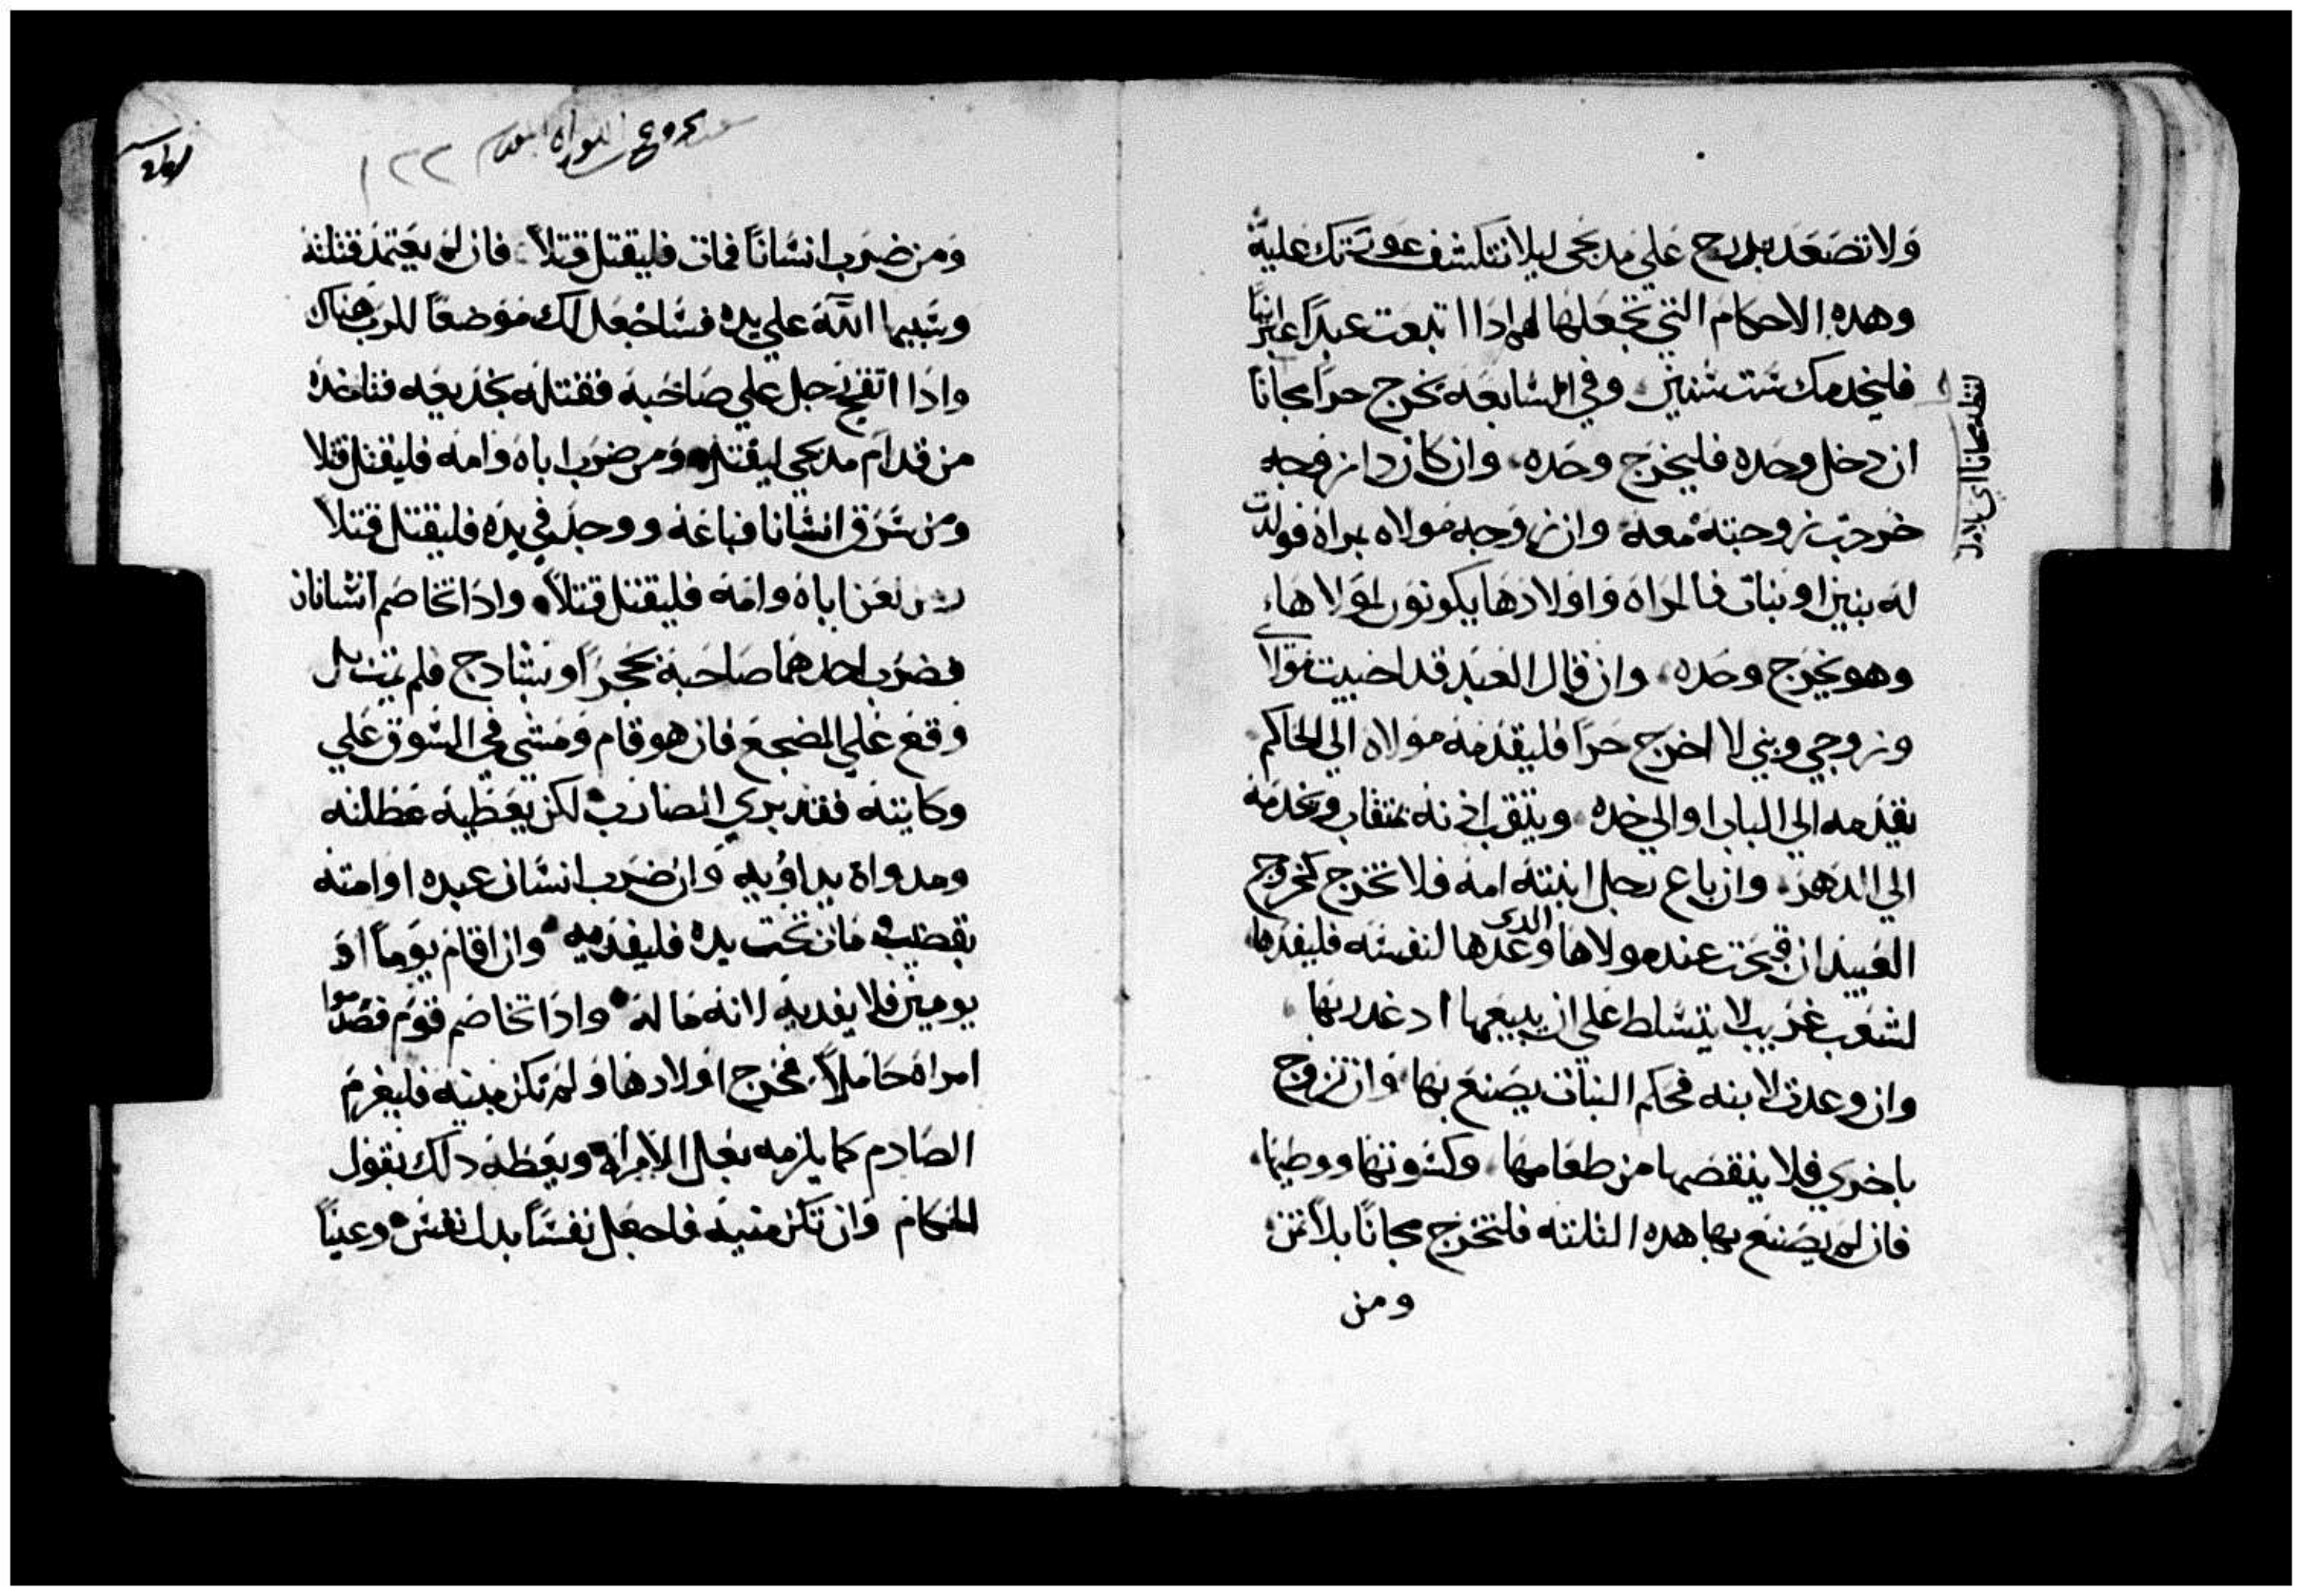 ولا تصعد بدرج علي مدبحي ليلا تتكشف عورتك عليه
وهده الاحكام التي تجعلها لهم ادا ابتعت عبداً عبرانياً
فليخدمك ست سنين وفي السابعه يخرج حراً مجاناً
ان دخل وحده فليخرج وحده وان كان دا زوجه
خرجت زوجته معه وان زوجه مولاه مراه فولدت
له بنين او بنات فالمراه واولادها يكونون لمولاها
وهو يخرج وحده وان قال العبد قد احببت مولاي
وزوجي وبني لا اخرج حراً فليقدمه مولاه الي الحاكم
يقدمه الي الباب او الي حده ويتقب ادنه بمتقاب ويخدمه
الي الدهر وان باع رجل ابنته امه فلا تخرج كخروج
العبيد ان قبحت عند مولاها الدي وعدها لنفسه فليفدها
لشعب غريب لا يتسلط علي ان يبيعها اد غدر بها
وان وعدت لابنه فحكم البنات يصنع بها وان تزوج
باخري فلا ينقصها من طعامها وكسوتها ووطيها
فان لم يصنع بها هده التلته فلتخرج مجاناً بلا تمن
ومن
١٢٢
ومن ضرب انساناً فمات فليقتل قتلاً فان لم يعتمد قتله
الله علي يده فساجعل لك موضعاً للرب هناك
وادا اتقح رجل علي صاحبه فقتله بخديعه فتاخده
من قدام مدبحي ليقتل ومن ضرب اباه وامه فليقتل قتلا
ومن سرق انسانا فباعه ووجد في يده فليقتل قتلاً
ومن لعن اباه وامه فليقتل قتلاً وادا تخاصم انسانان
فضرب احدهما صاحبه بحجر او فلم يمت بل
وقع علي المضجع فان هو قام ومشي في السوق علي
وكايته فقد بري الضارب لكن يعطيه عطلته
ومدواة يداويه وان ضرب انسان عبده او امته
بقضيب فمات تحت يده فليفديه وان اقام يوماً او
يومين فلا يفديه لانه ماله وادا تخاصم قوم فصدموا
امراه حاملاً فخرج اولادها ولم تكن منيه فليغرم
الصادم كما يلزمه بعل الامراة ويعطه دلك بقول
الحكام وان تكن منيه فاجعل نفساً بدل نفس وعيناً